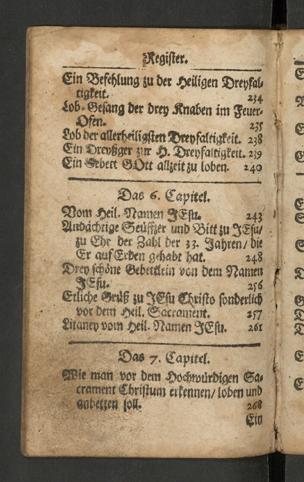 Register.
Ein Befehlung zu der Heiligen Dreyfal-
tigkeit. 234
Lob-Gesang der drey Knaben im Feuer-
Ofen. 235
Lob der allerheiligsten Dreyfaltigkeit. 238
Ein Dreyßger zur H. Dreyfaltigkeit. 239
Ein Gebett GOtt allzeit zu loben. 240
Das 6. Capitel.
Vom Heil. Namen JEsu. 243
Andächtige Seuffzer und Bitt zu JEsu/
zu Ehr der Zahl der 33. Jahren/ die
Er auf Erden gehabt hat. 248
Drey schöne Gebettlein von dem Namen
JEsu. 256
Etliche Grüß zu JEsu Christo sonderlich
vor dem Heil. Sacrament. 257
Litaney vom Heil. Namen JEsu. 261
Das 7. Capitel.
Wie man vor dem Hochwürdigen Sa-
crament Christum erkennen/ loben und
anbetten soll. 268
Ein